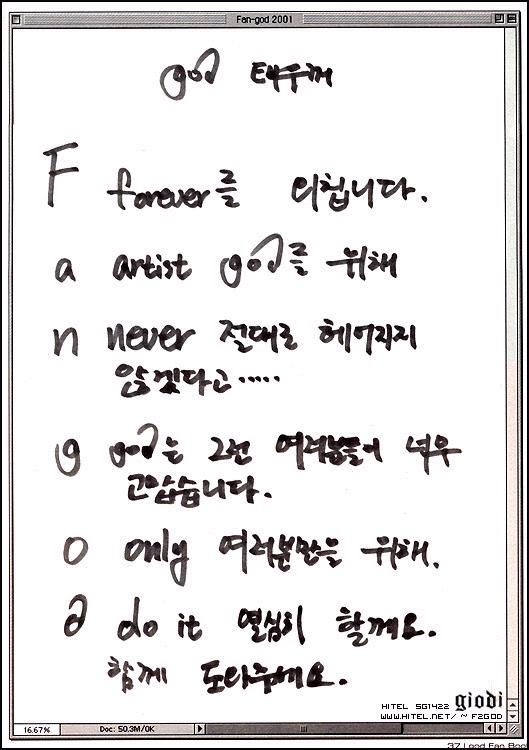 Fan-god 2001
god 태우께
F forever를 외칩니다.
a artist god를 위해
n never 절대로 헤어지지
않겠다고.....
g god는 그런 여러분들이 너무
고맙습니다.
o only 여러분만을 위해.
d do it 열심히 할께요.
함께 도와주세요.
giodi
HITEL SG1422
WWW.HITEL.NET/~F2GOD
16.67% Doc: 50.3M/0K